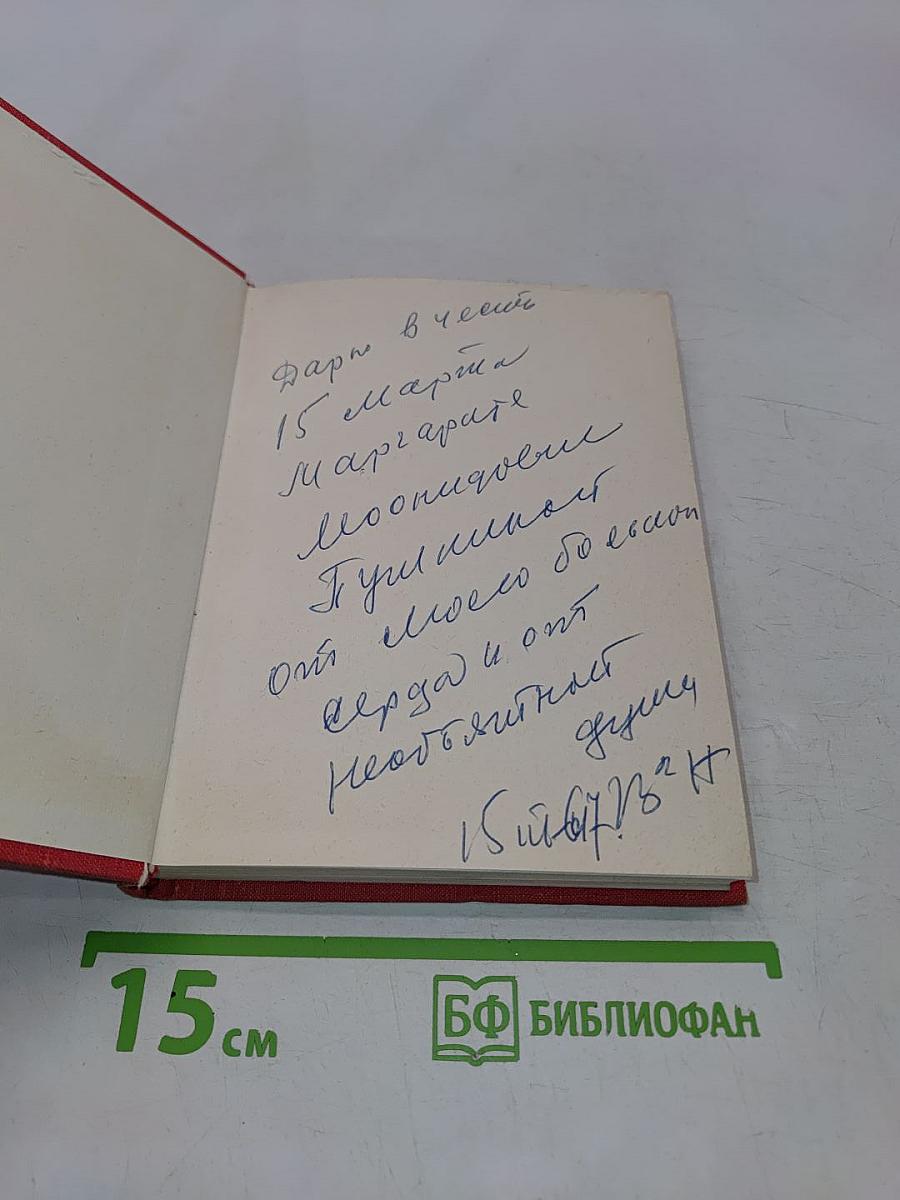 Дарю в честь
15 марта
Маргарите
Пушкиной
от моего большого
сердца и от
необъятной
души
15 III 67.
15 см
БФ БИБЛИОФАН